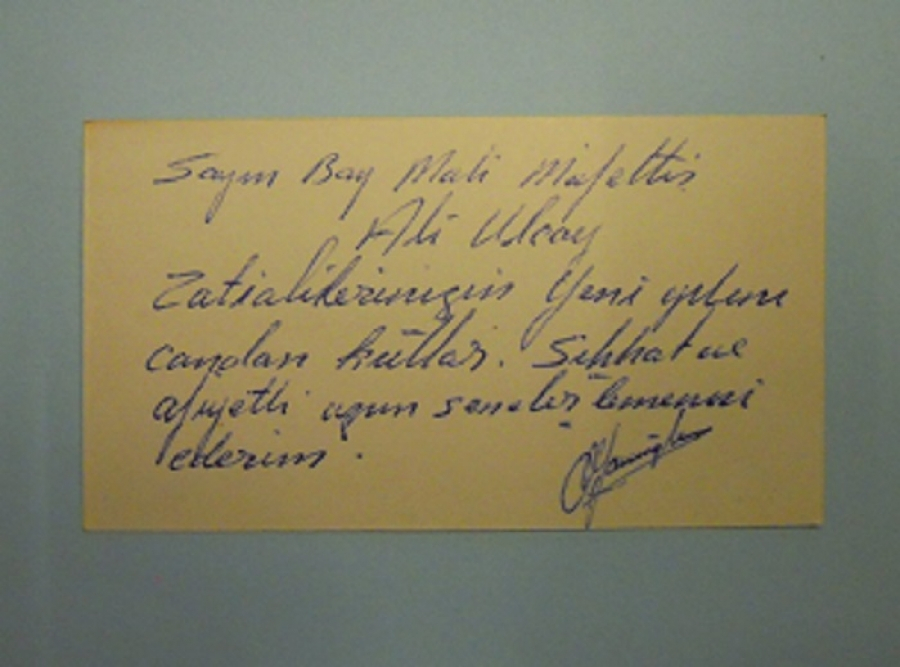 Sayın Bay Mali Müfettiş
Ali Ulcay
Zatialilerinizin Yeni yılını
candan kutlar. Sıhhat ve
afiyetli uzun seneler temenni
ederim.